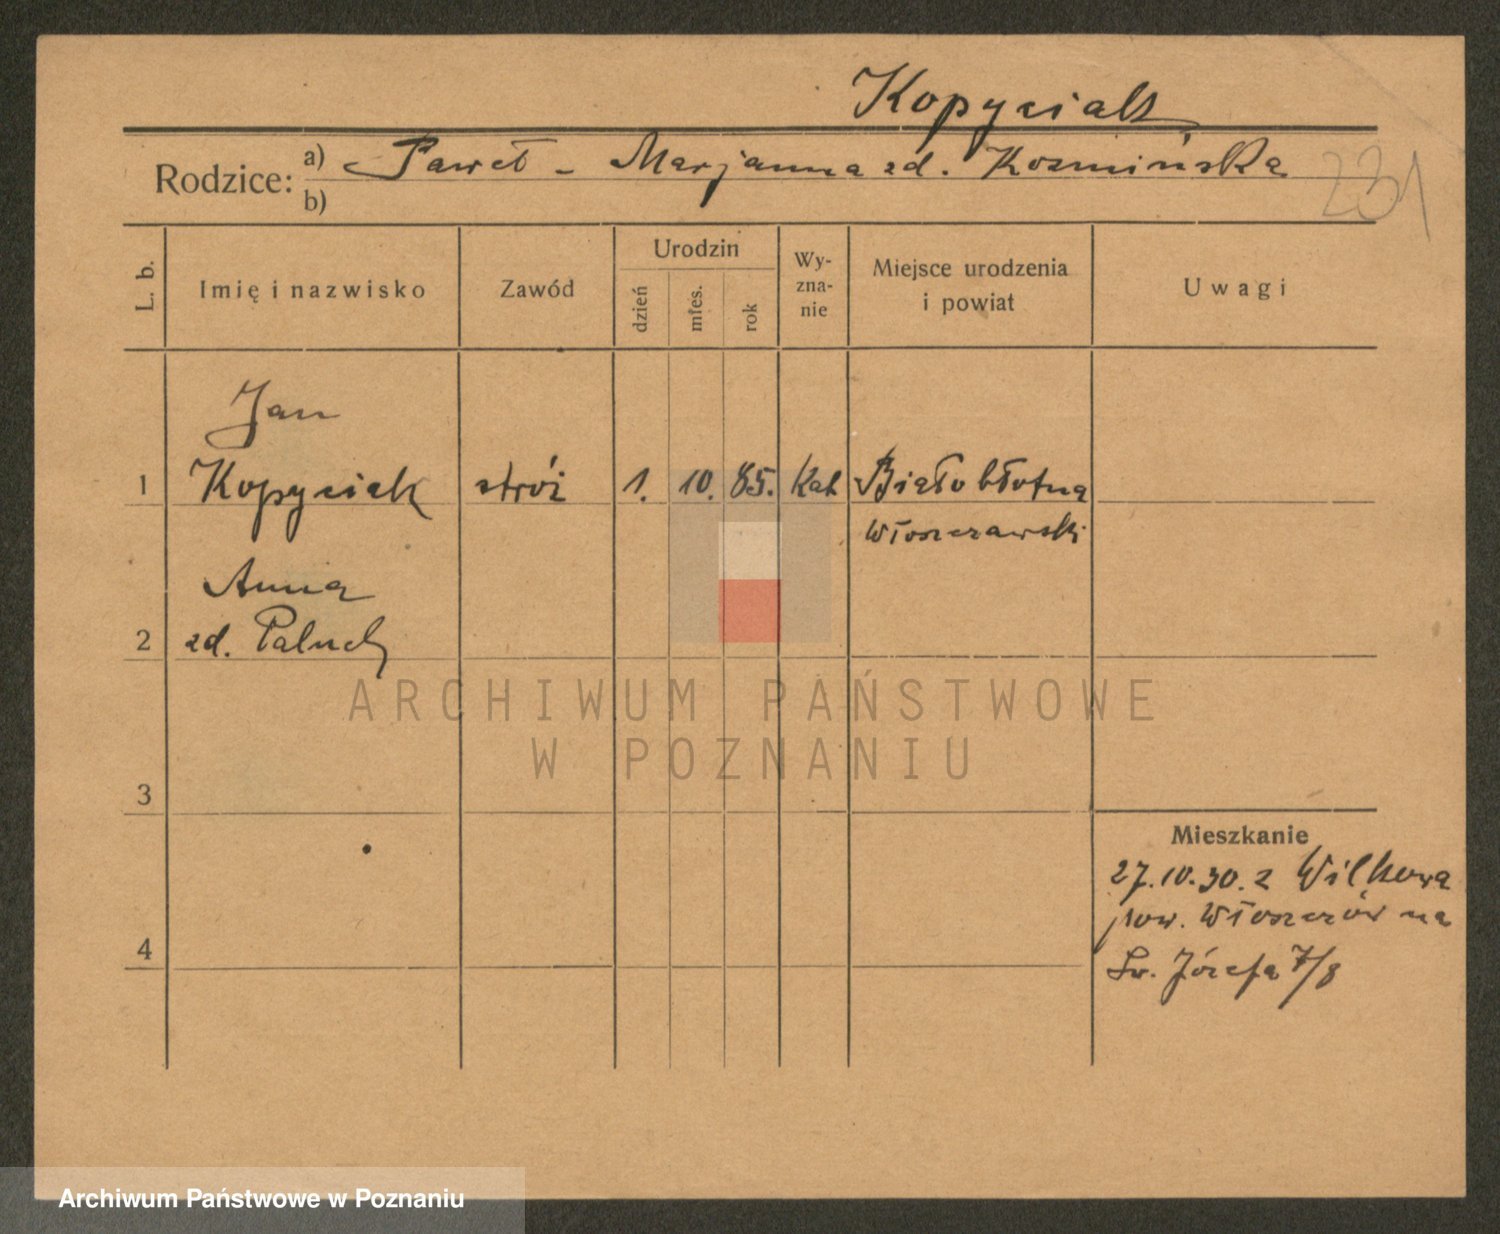 Kopyciak
Rodzice: a) Paweł - Marjanna zd. Kozmińska 231
b)
L. b. Imię i nazwisko Zawód Urodzin dzień mies. rok Wy-zna-nie Miejsce urodzenia i powiat Uwagi
Jan
1 Kopyciak stróż 1. 10. 85. Kat Białobłotna
Włoszczawski
Anna
2 zd. Paluch
ARCHIWUM PAŃSTWOWE
W POZNANIU
3
Mieszkanie
27.10.30. z Wilkowa
pow. Włoszczów na
4
Św. Józefa 7/8
Archiwum Państwowe w Poznaniu